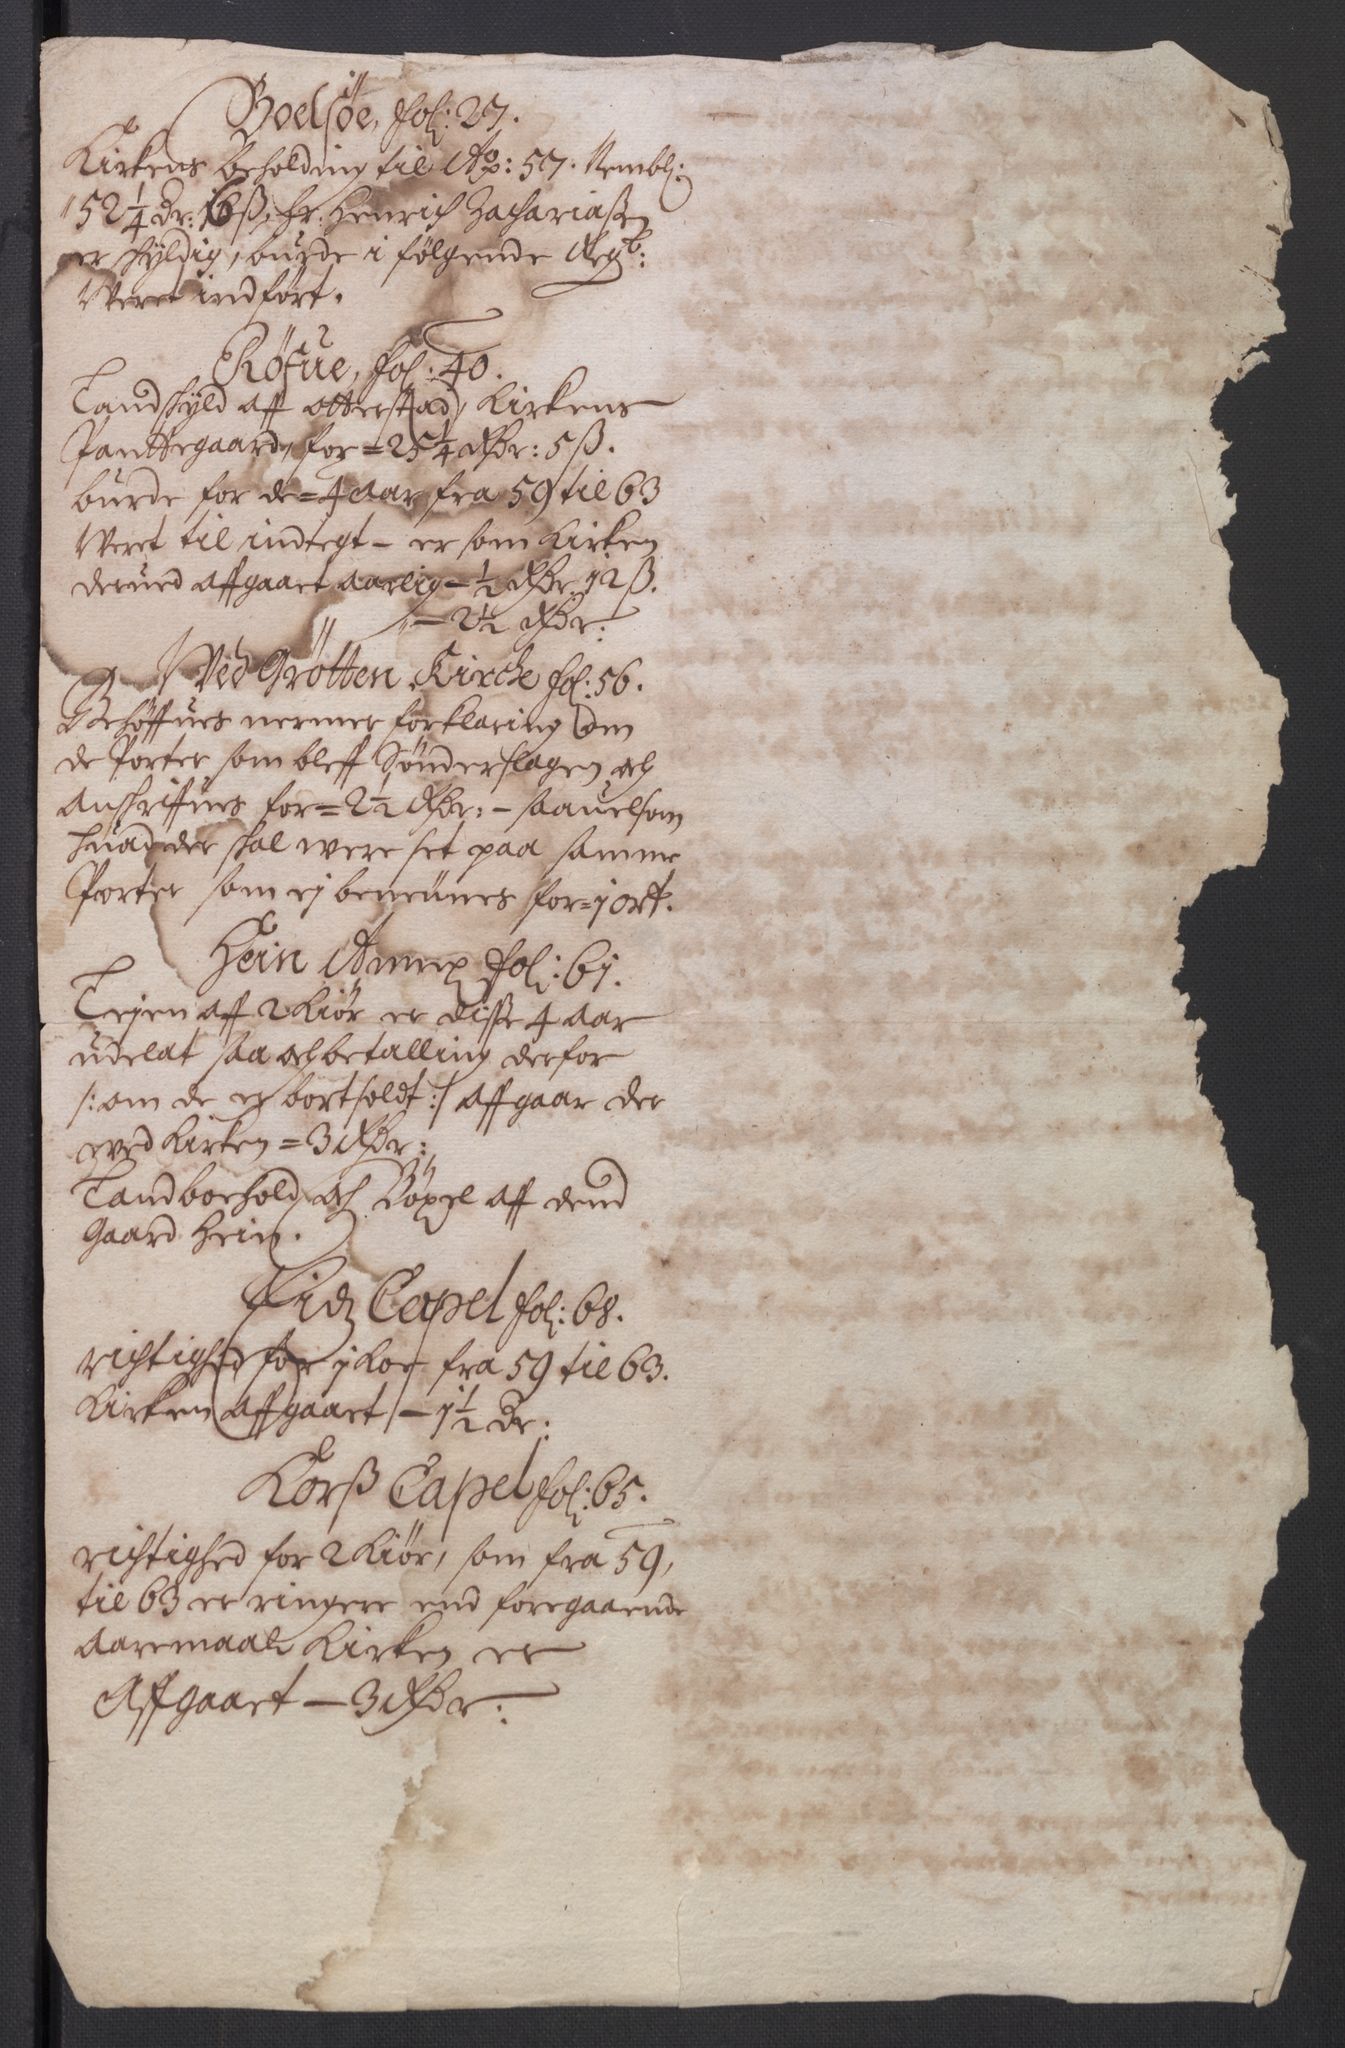 Boelsöe, fol: 27.
Kirkens beholding til Ao: 57. Nembl:
152 1/4 Dr: 16 ß, hr. Henrich Zachariaßen
er schyldig, burde i følgende Regb:
Weret indført.
Röfue, fol: 40.
Landschyld aff otterstad, Kirkens
Panttegaard, for = 25 1/4 Rdr: 5 ß.
burde for de = 4 Aar fra 59 til 63
Weret til indtegt – er som Kirken
derued affgaart aarlig – 1/2 Rdr. 12 ß.
– 2 1/2 Rdr:
Ved Grötten Kirche fol: 56.
Behöffues nermer forklaring om
de Porter som bleff Sønderslagen och
Anschriffues for = 2 1/2 Rdr: – saauelsom
huad der schal were set paa samme
Porter som ej beneunes for = j ort.
Hein Annex fol: 6j.
Leyen aff 2 Kiör er disse 4 Aar
udelat saa och betalling derfor
/: om de er bortsoldt :/ affgaar der
wed Kirken = 3 Rdr:
Landbohold och Böxel aff dend
Gaard Hein.
Lidz Capel fol: 68.
richtighed for j Koe fra 59 til 63.
Kirken affgaart – j 1/2 Dr:
Korß Capel fol: 65.
richtighed for 2 Kiör, som fra 59,
til 63 er ringere end foregaaende
Aaremaal Kirken er
Affgaart – 3 Rdr: